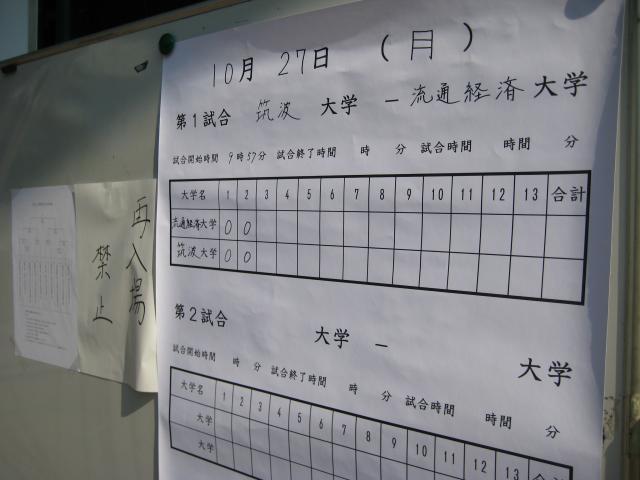 10月 27日 (月)
第1試合 筑波 大学 － 流通経済 大学
試合開始時間 9時57分 試合終了時間 時 分 試合時間 時間 分
大学名 1 2 3 4 5 6 7 8 9 10 11 12 13 合計
流通経済大学 0 0
筑波大学 0 0
第2試合 大学 － 大学
試合開始時間 時 分 試合終了時間 時 分 試合時間 時間 分
大学名 1 2 3 4 5 6 7 8 9 10 11 12 13 合計
大学
大学
再入場
禁止